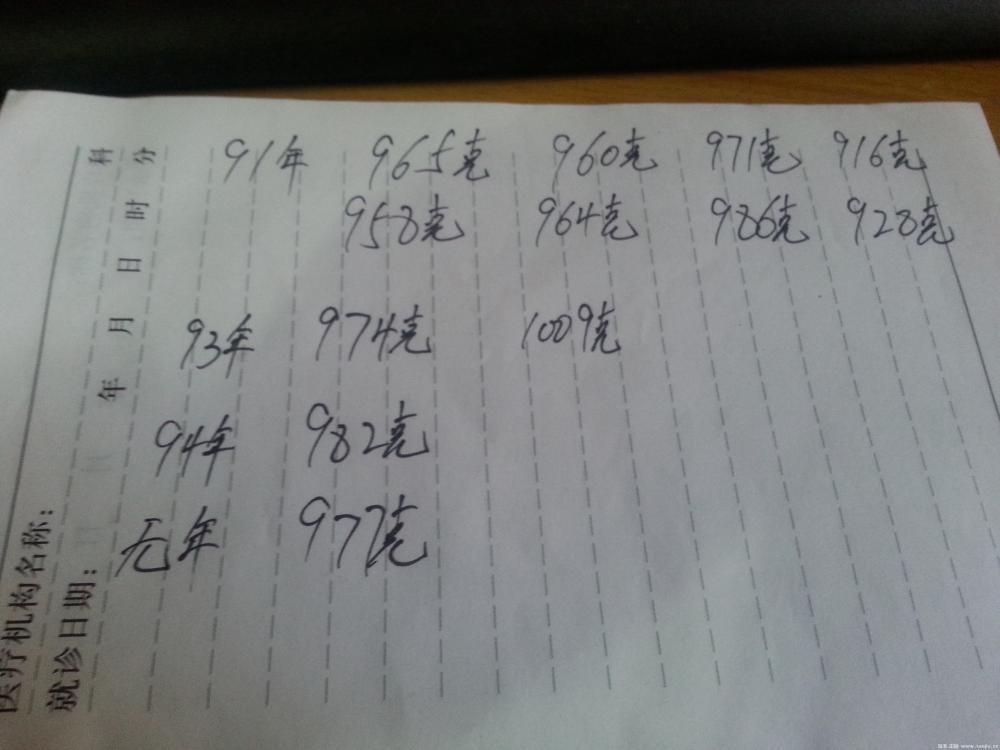 91年 965克 960克 971克 916克
958克 964克 986克 928克
93年 974克 1009克
94年 982克
无年 977克
医疗机构名称:
就诊日期: 年 月 日 时 分
科